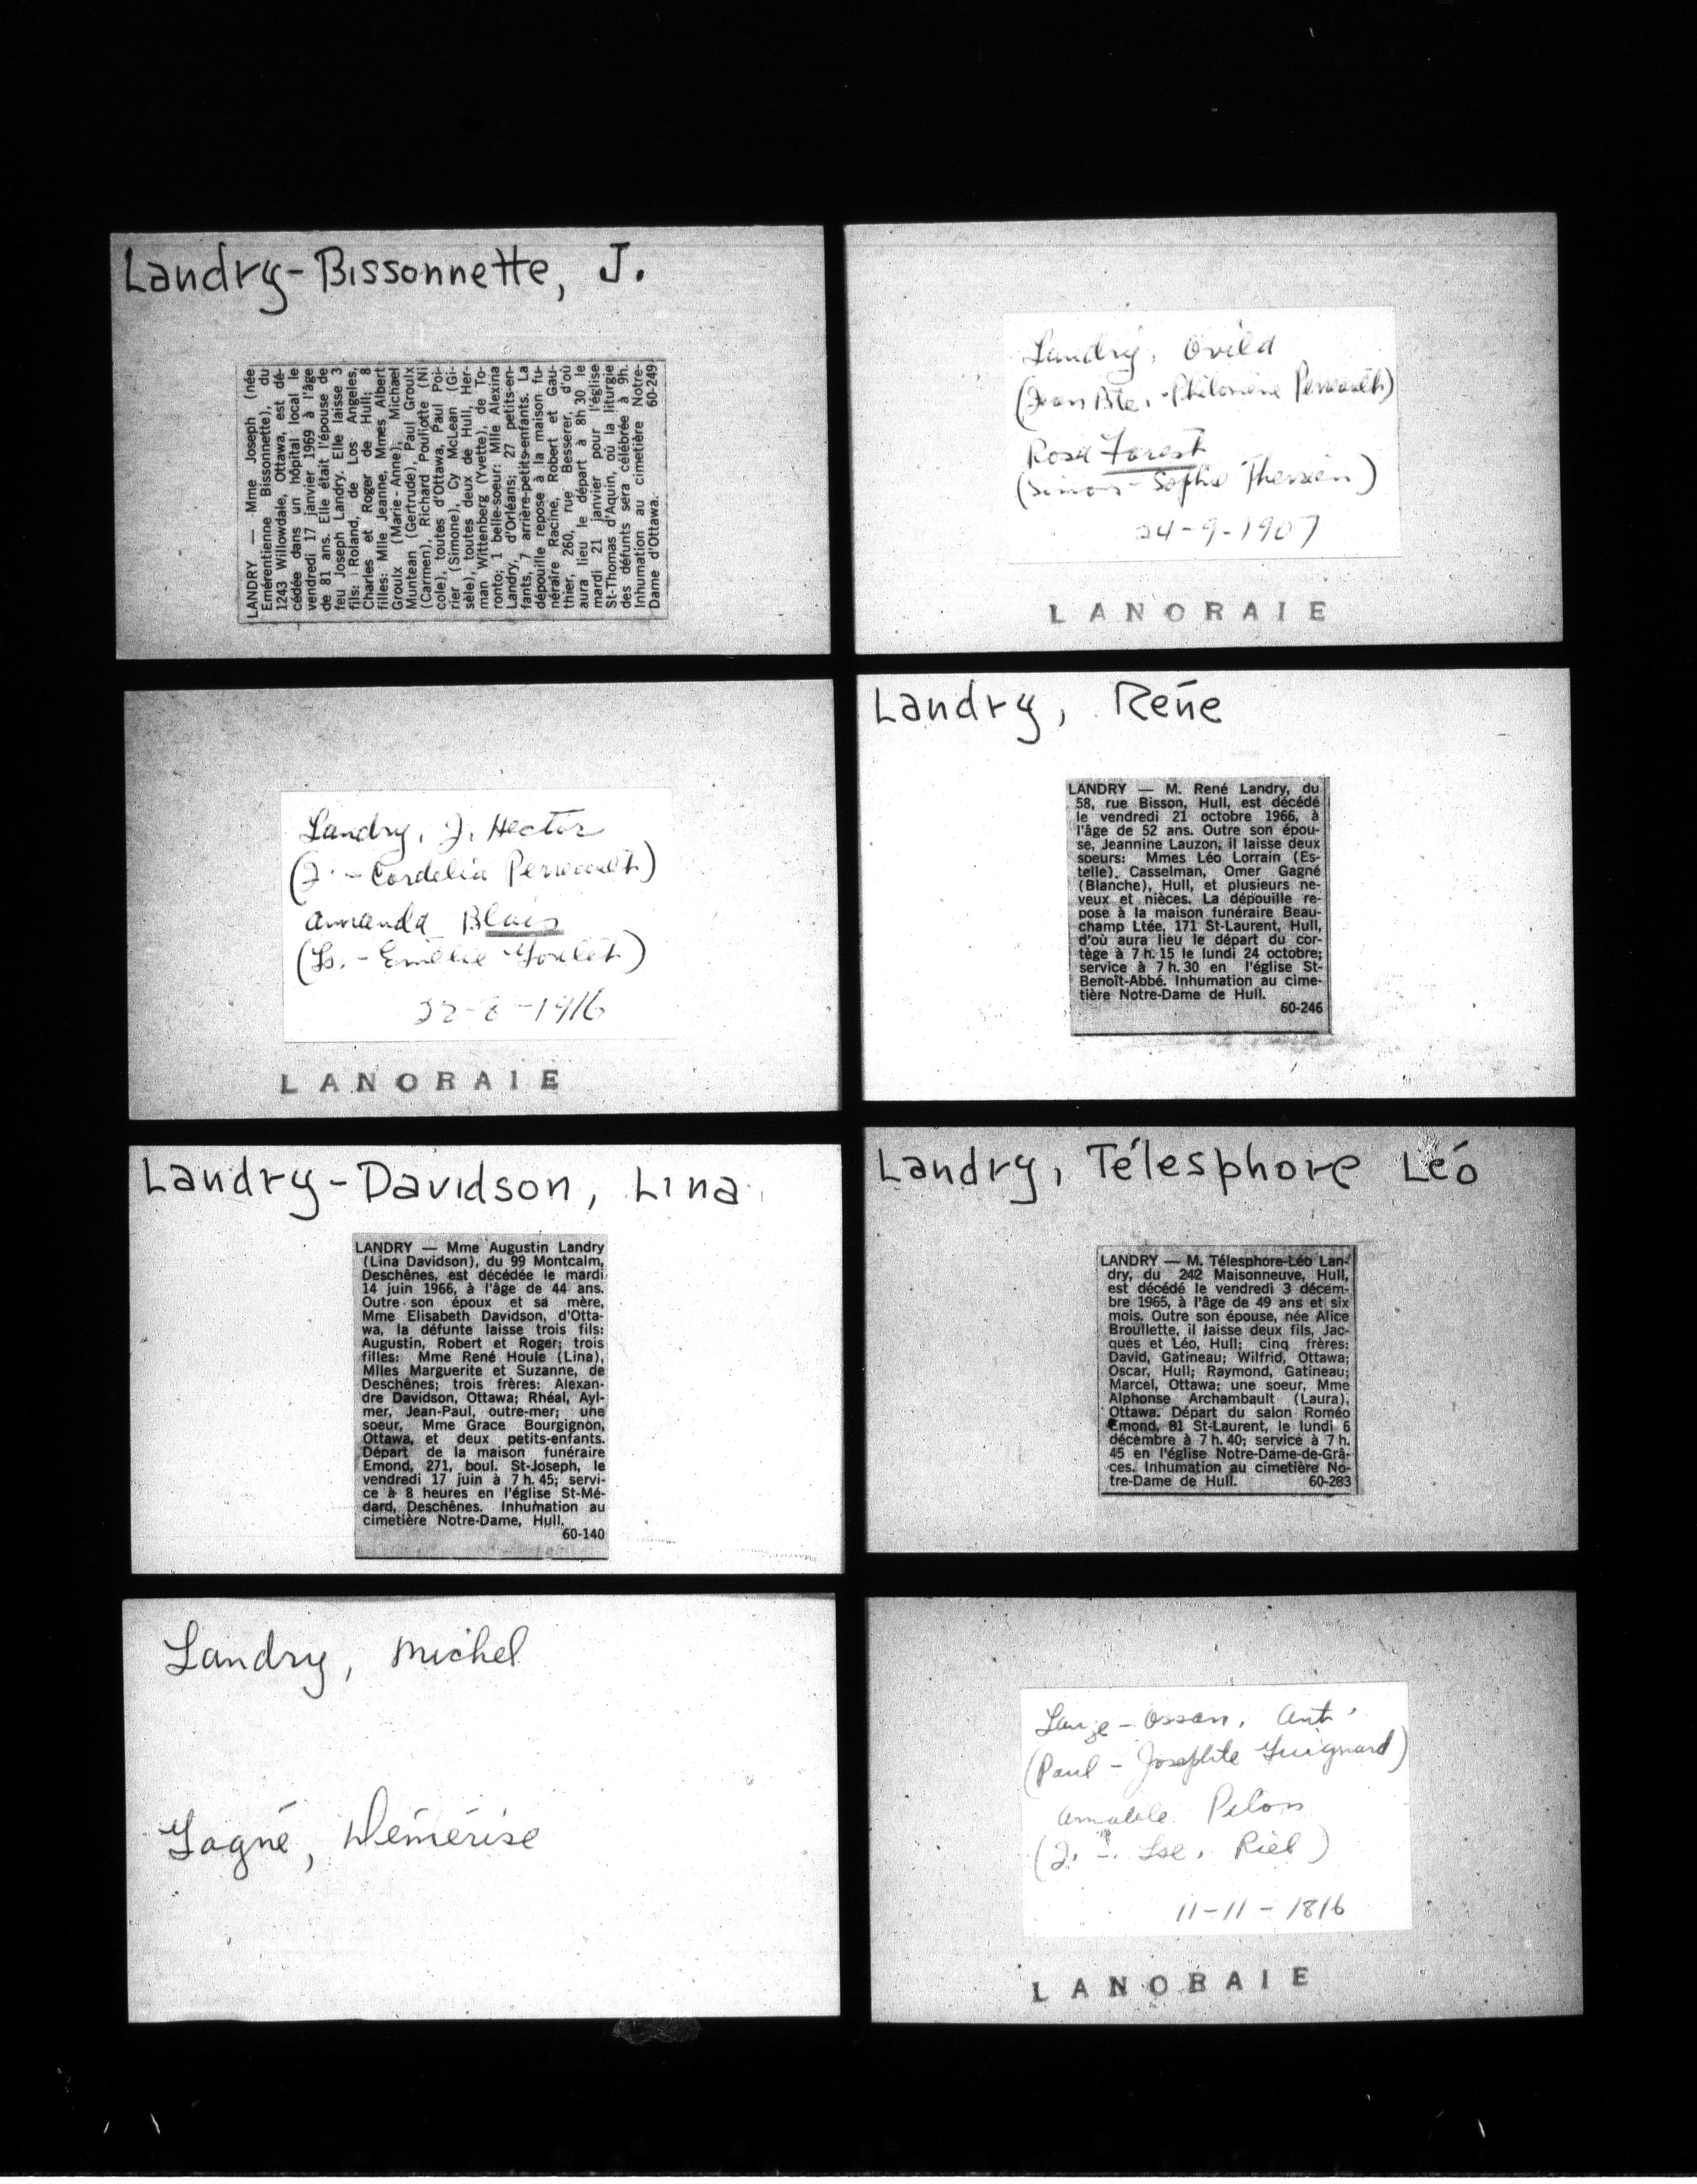 Landry-Bissonnette, J.
LANDRY — Mme Joseph (née
Emérentienne Bissonnette), du
1243 Willowdale, Ottawa, est dé-
cédée dans un hôpital local le
vendredi 17 janvier 1969 à l'âge
de 81 ans. Elle était l'épouse de
feu Joseph Landry. Elle laisse 3
fils: Roland, de Los Angeles,
Charles et Roger de Hull; 8
filles: Mlle Jeanne, Mmes Albert
Groulx (Marie-Anne), Michael
Muntean (Gertrude), Paul Groulx
(Carmen), Richard Pouliotte (Ni
cole), toutes d'Ottawa, Paul Poi-
rier (Simone), Cy McLean (Gi-
sèle), toutes deux de Hull, Her-
man Wittenberg (Yvette), de To-
ronto; 1 belle-soeur: Mlle Alexina
Landry, d'Orléans; 27 petits-en-
fants, 7 arrière-petits-enfants. La
dépouille repose à la maison fu-
néraire Racine, Robert et Gau-
thier, 260, rue Besserer, d'où
aura lieu le départ à 8h 30 le
mardi 21 janvier pour l'église
St-Thomas d'Aquin, où la liturgie
des défunts sera célébrée à 9h.
Inhumation au cimetière Notre-
Dame d'Ottawa. 60-249
Landry, Ovila
(Jean Bte. - Philomène Perreault)
Rosa Forest
(Simon - Sophie Therrien)
24-9-1907
LANORAIE
Landry, J. Hector
(J. - Cordelia Perreault)
Amanda Blais
(Ls. - Emélie Goulet)
1916
LANORAIE
Landry, Réne
LANDRY — M. René Landry, du
58, rue Bisson, Hull, est décédé
le vendredi 21 octobre 1966, à
l'âge de 52 ans. Outre son épou-
se, Jeannine Lauzon, il laisse deux
soeurs: Mmes Léo Lorrain (Es-
telle), Casselman, Omer Gagné
(Blanche), Hull, et plusieurs ne-
veux et nièces. La dépouille re-
pose à la maison funéraire Beau-
champ Ltée, 171 St-Laurent, Hull,
d'où aura lieu le départ du cor-
tège à 7 h. 15 le lundi 24 octobre;
service à 7 h. 30 en l'église St-
Benoît-Abbé. Inhumation au cime-
tière Notre-Dame de Hull.
60-246
Landry-Davidson, Lina
LANDRY — Mme Augustin Landry
(Lina Davidson), du 99 Montcalm,
Deschênes, est décédée le mardi
14 juin 1966, à l'âge de 44 ans.
Outre son époux et sa mère,
Mme Elisabeth Davidson, d'Otta-
wa, la défunte laisse trois fils:
Augustin, Robert et Roger; trois
filles: Mme René Houle (Lina),
Mlles Marguerite et Suzanne, de
Deschênes; trois frères: Alexan-
dre Davidson, Ottawa; Rhéal, Ayl-
mer, Jean-Paul, outre-mer; une
soeur, Mme Grace Bourgignon,
Ottawa, et deux petits-enfants.
Départ de la maison funéraire
Emond, 271, boul. St-Joseph, le
vendredi 17 juin à 7 h. 45; servi-
ce à 8 heures en l'église St-Mé-
dard, Deschênes. Inhumation au
cimetière Notre-Dame, Hull.
60-140
Landry, Télesphore Léo
LANDRY — M. Télesphore-Léo Lan-
dry, du 242 Maisonneuve, Hull,
est décédé le vendredi 3 décem-
bre 1965, à l'âge de 49 ans et six
mois. Outre son épouse, née Alice
Broullette, il laisse deux fils, Jac-
ques et Léo, Hull; cinq frères:
David, Gatineau; Wilfrid, Ottawa;
Oscar, Hull; Raymond, Gatineau;
Marcel, Ottawa; une soeur, Mme
Alphonse Archambault (Laura),
Ottawa. Départ du salon Roméo
Emond, 81 St-Laurent, le lundi 6
décembre à 7 h. 40; service à 7 h.
45 en l'église Notre-Dame-de-Grâ-
ces. Inhumation au cimetière No-
tre-Dame de Hull. 60-283
Landry, Michel
Gagné, Démérise
Lange - Ossan, Ant.
(Paul - Josephte Guignard)
Amable Pelon
(J. - Lse. Riel)
11-11-1816
LANORAIE